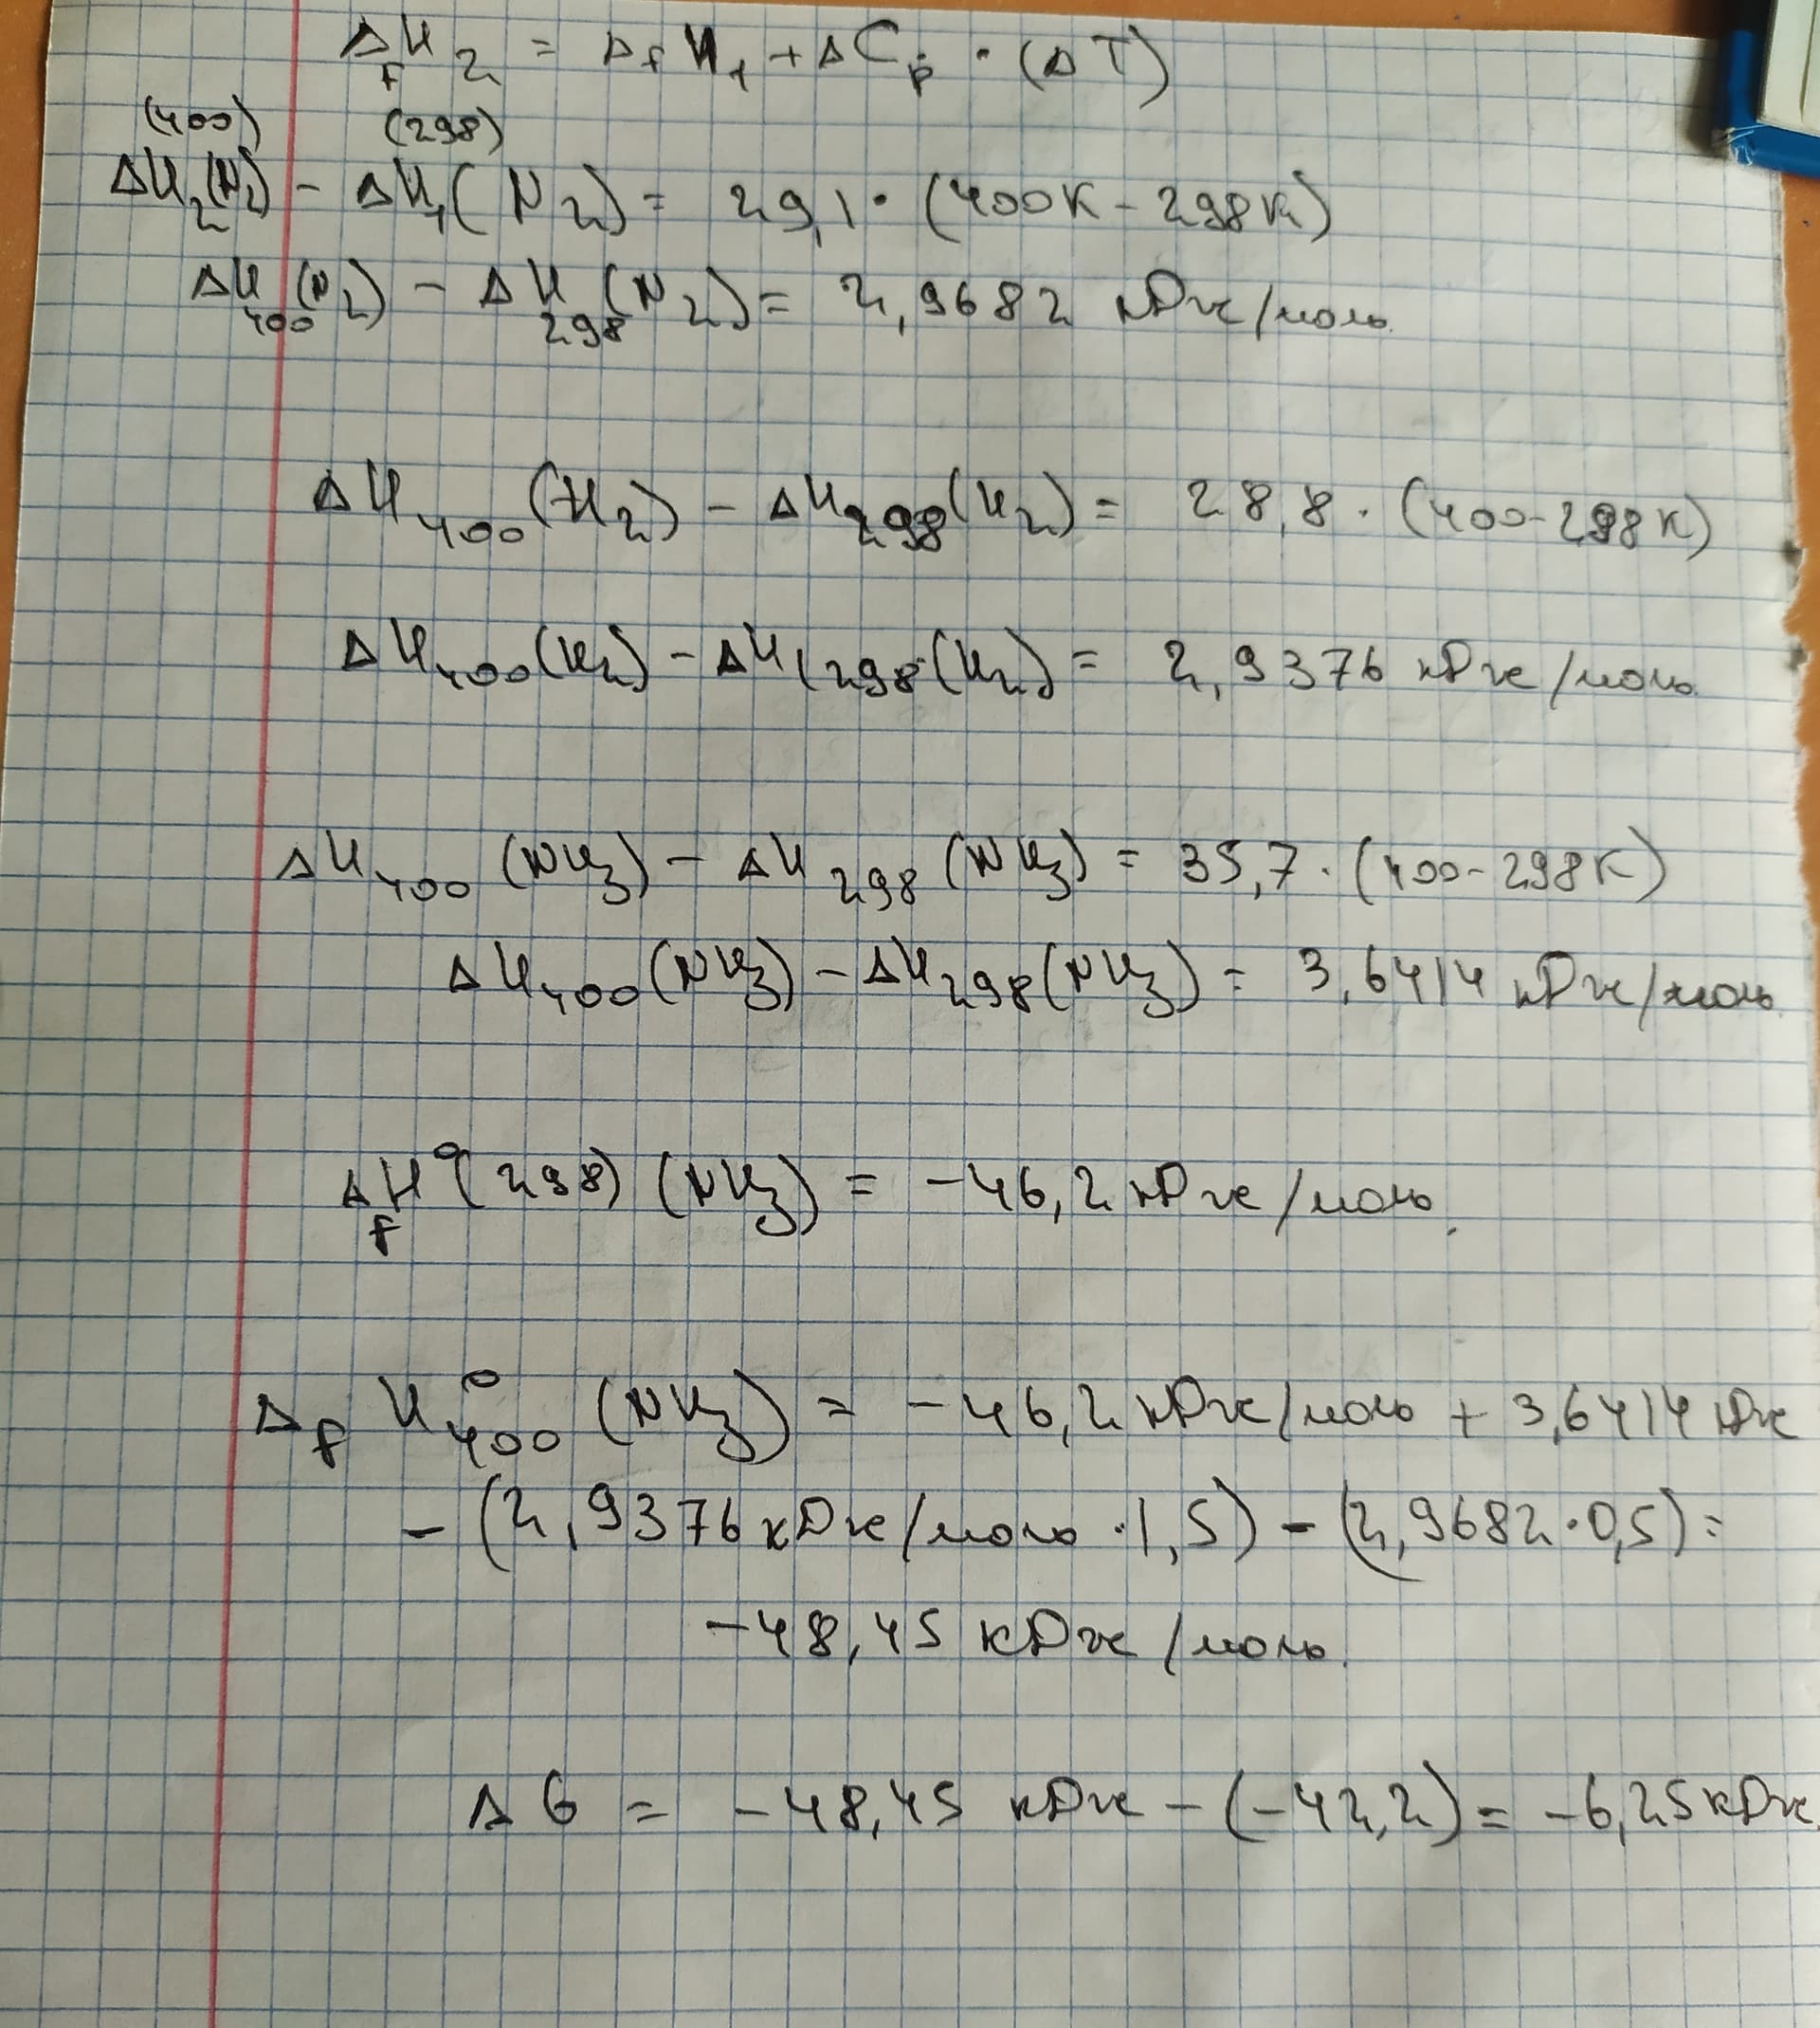 Δ_f H_2 = Δ_f H_1 + ΔC_p · (ΔT)
(400) (298)
ΔH_2(N_2) - ΔH_1(N_2) = 29,1 · (400K - 298K)
ΔH_400(N_2) - ΔH_298(N_2) = 2,9682 кДж/моль
ΔH_400(H_2) - ΔH_298(H_2) = 28,8 · (400-298K)
ΔH_400(H_2) - ΔH_(298(H_2) = 2,9376 кДж/моль
ΔH_400(NH_3) - ΔH_298(NH_3) = 35,7 · (400-298K)
ΔH_400(NH_3) - ΔH_298(NH_3) = 3,6414 кДж/моль
Δ_f H°(298) (NH_3) = -46,2 кДж/моль.
Δ_f H°_400 (NH_3) = -46,2 кДж/моль + 3,6414 кДж
- (2,9376 кДж/моль · 1,5) - (2,9682 · 0,5) =
-48,45 кДж/моль.
ΔG = -48,45 кДж - (-42,2) = -6,25 кДж